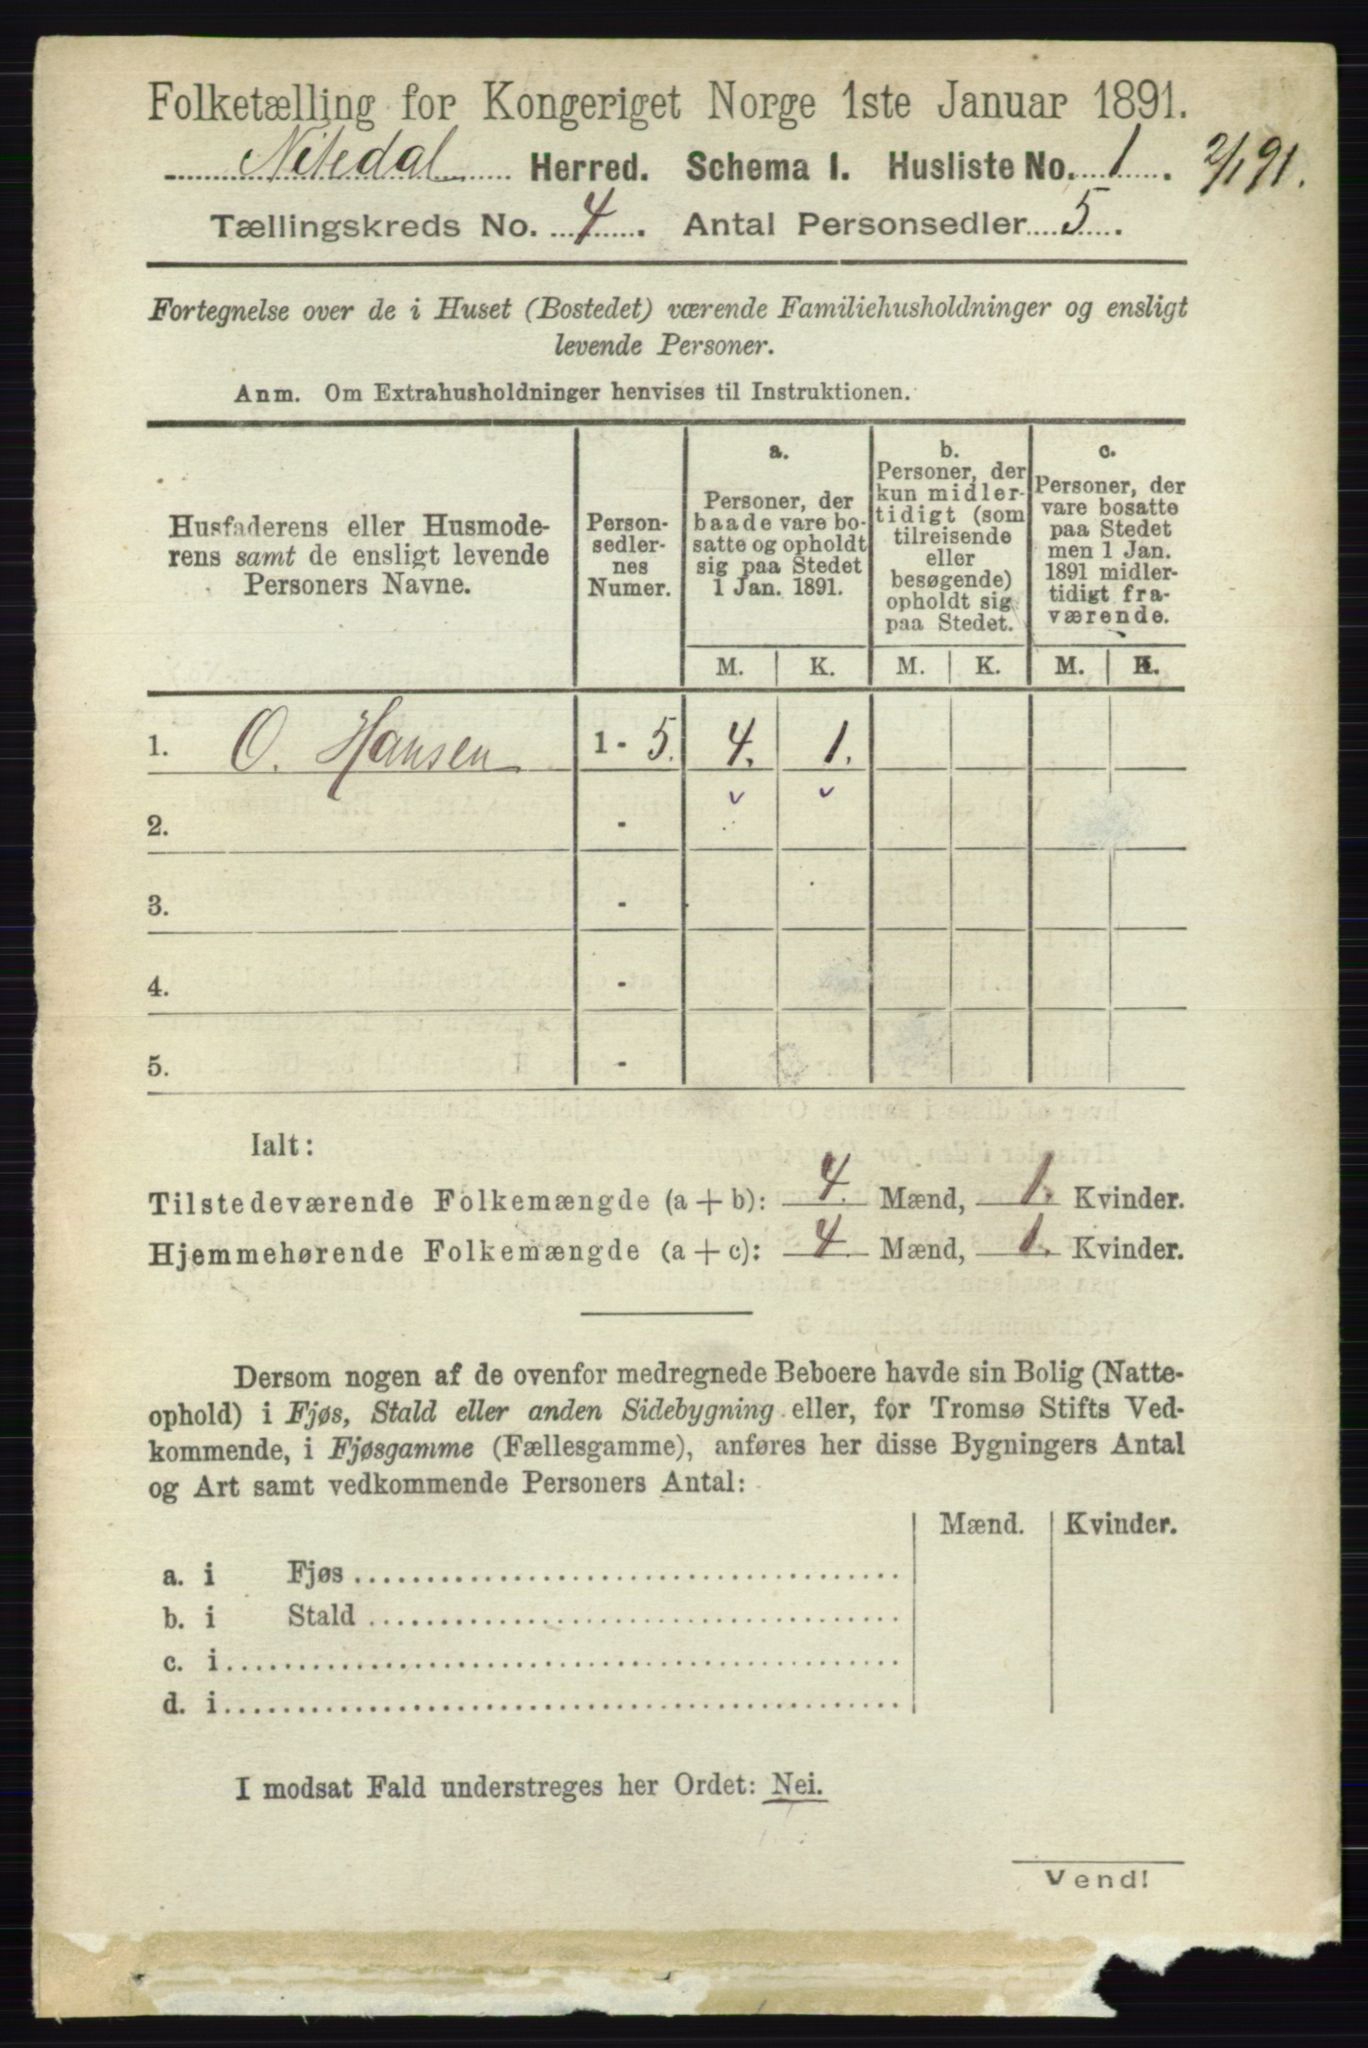 Folketælling for Kongeriget Norge 1ste Januar 1891.
Nitedal Herred. Schema I. Husliste No. 1. 2/1 91.
Tællingskreds No. 4. Antal Personsedler 5.
Fortegnelse over de i Huset (Bostedet) værende Familiehusholdninger og ensligt
levende Personer.
Anm. Om Extrahusholdninger henvises til Instruktionen.
Husfaderens eller Husmode-
rens samt de ensligt levende
Personers Navne.
Person-
sedler-
nes
Numer.
a.
Personer, der
baade vare bo-
satte og opholdt
sig paa Stedet
1 Jan. 1891.
b.
Personer, der
kun midler-
tidigt (som
tilreisende
eller
besøgende)
opholdt sig
paa Stedet.
c.
Personer, der
vare bosatte
paa Stedet
men 1 Jan.
1891 midler-
tidigt fra-
værende.
M. K. M. K. M. K.
1. O. Hansen 1 - 5. 4. 1.
2. -
3. -
4. -
5. -
Ialt:
Tilstedeværende Folkemængde (a + b): 4. Mænd, 1. Kvinder.
Hjemmehørende Folkemængde (a + c): 4. Mænd, 1. Kvinder.
Dersom nogen af de ovenfor medregnede Beboere havde sin Bolig (Natte-
ophold) i Fjøs, Stald eller anden Sidebygning eller, for Tromsø Stifts Ved-
kommende, i Fjøsgamme (Fællesgamme), anføres her disse Bygningers Antal
og Art samt vedkommende Personers Antal:
Mænd. Kvinder.
a. i Fjøs
b. i Stald
c. i
d. i
I modsat Fald understreges her Ordet: Nei.
Vend!